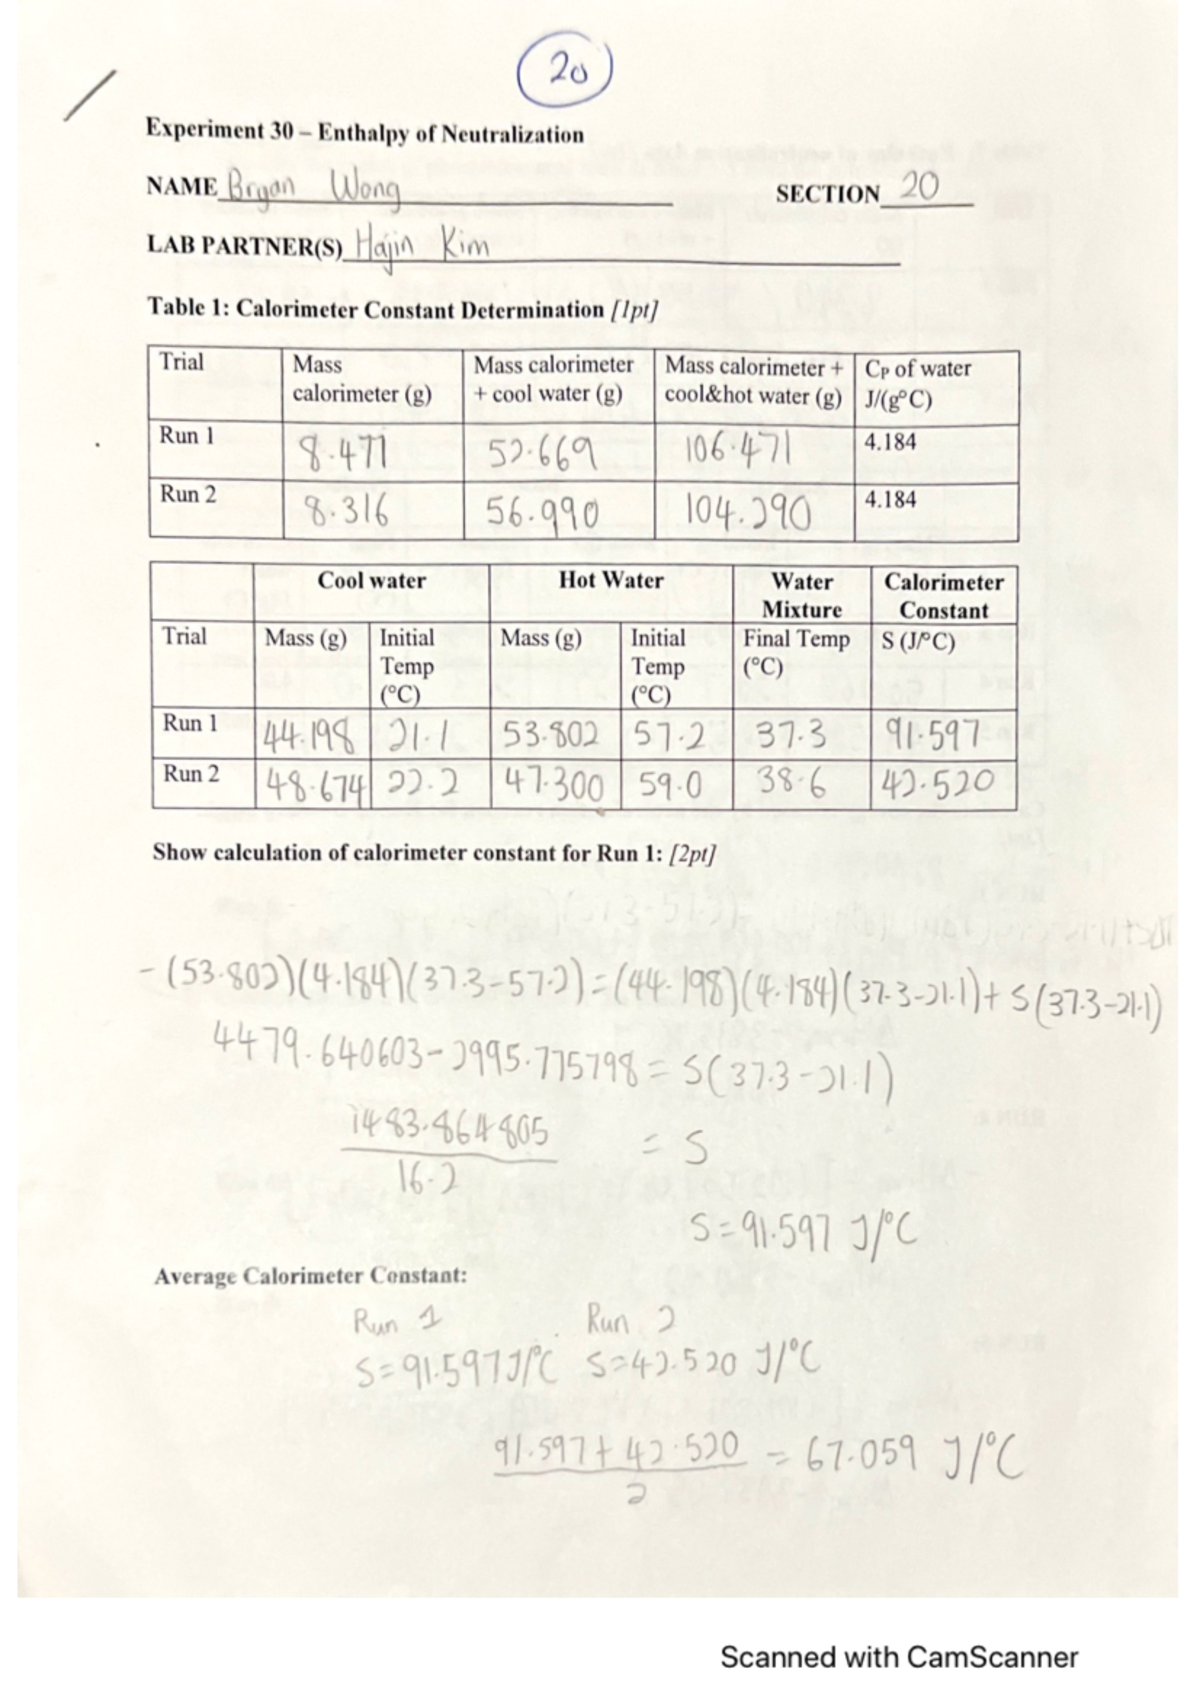 20
Experiment 30 – Enthalpy of Neutralization
NAME Bryan Wong SECTION 20
LAB PARTNER(S) Hajin Kim
Table 1: Calorimeter Constant Determination [1pt]
Trial Mass calorimeter (g) Mass calorimeter + cool water (g) Mass calorimeter + cool&hot water (g) CP of water J/(g°C)
Run 1 8.471 52.669 106.471 4.184
Run 2 8.316 56.990 104.290 4.184
Cool water Hot Water Water Mixture Calorimeter Constant
Trial Mass (g) Initial Temp (°C) Mass (g) Initial Temp (°C) Final Temp (°C) S (J/°C)
Run 1 44.198 21.1 53.802 57.2 37.3 91.597
Run 2 48.674 22.2 47.300 59.0 38.6 42.520
Show calculation of calorimeter constant for Run 1: [2pt]
-(53.802)(4.184)(37.3-57.2)=(44.198)(4.184)(37.3-21.1)+S(37.3-21.1)
4479.640603-2995.775798=S(37.3-21.1)
1483.864805
= S
16.2
S=91.597 J/°C
Average Calorimeter Constant:
Run 1 Run 2
S=91.597J/°C S=42.520 J/°C
91.597+42.520 = 67.059 J/°C
2
Scanned with CamScanner